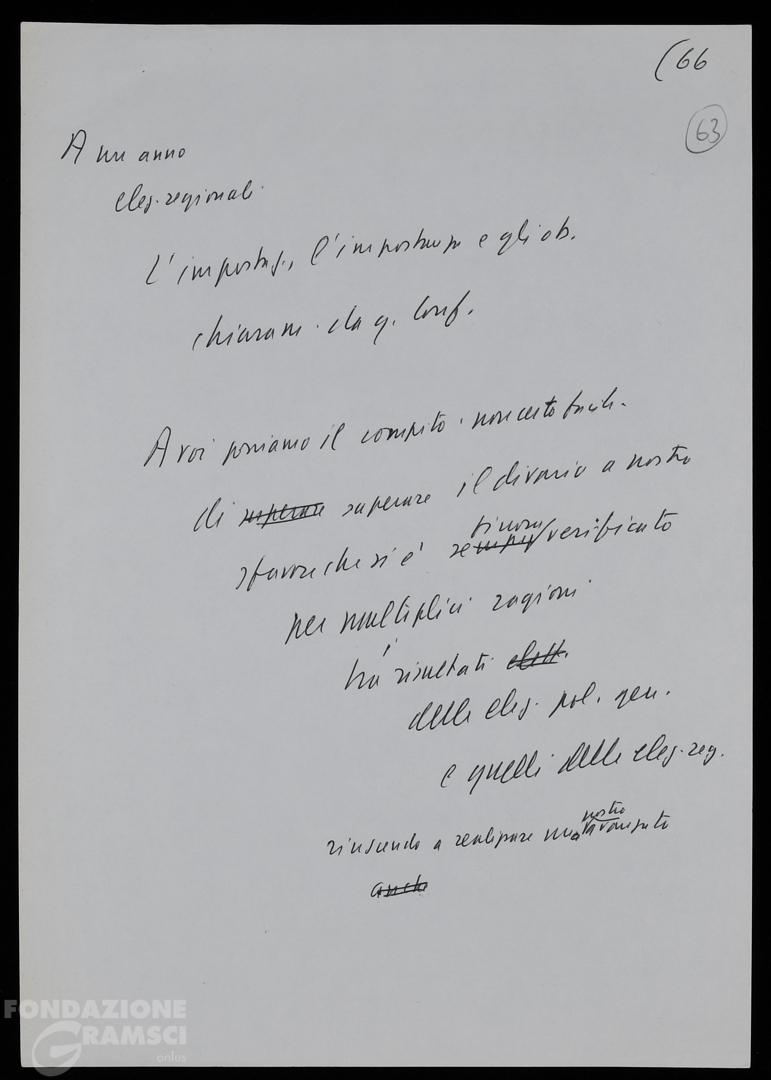 (66
63
A un anno
elez. regionali.
L'impostaz., l'importanza e gli ob.
chiaram. da q. Conf.
A voi poniamo il compito, non certo facile.
di superare superare il divario a nostro
finora
sfavore che si è sempre verificato
per molteplici ragioni
tra i risultati elett.
delle elez. pol. gen.
e quelli delle elez. reg.
nostro
riuscendo a realizzare una avanzata
anche
FONDAZIONE
GRAMSCI
onlus